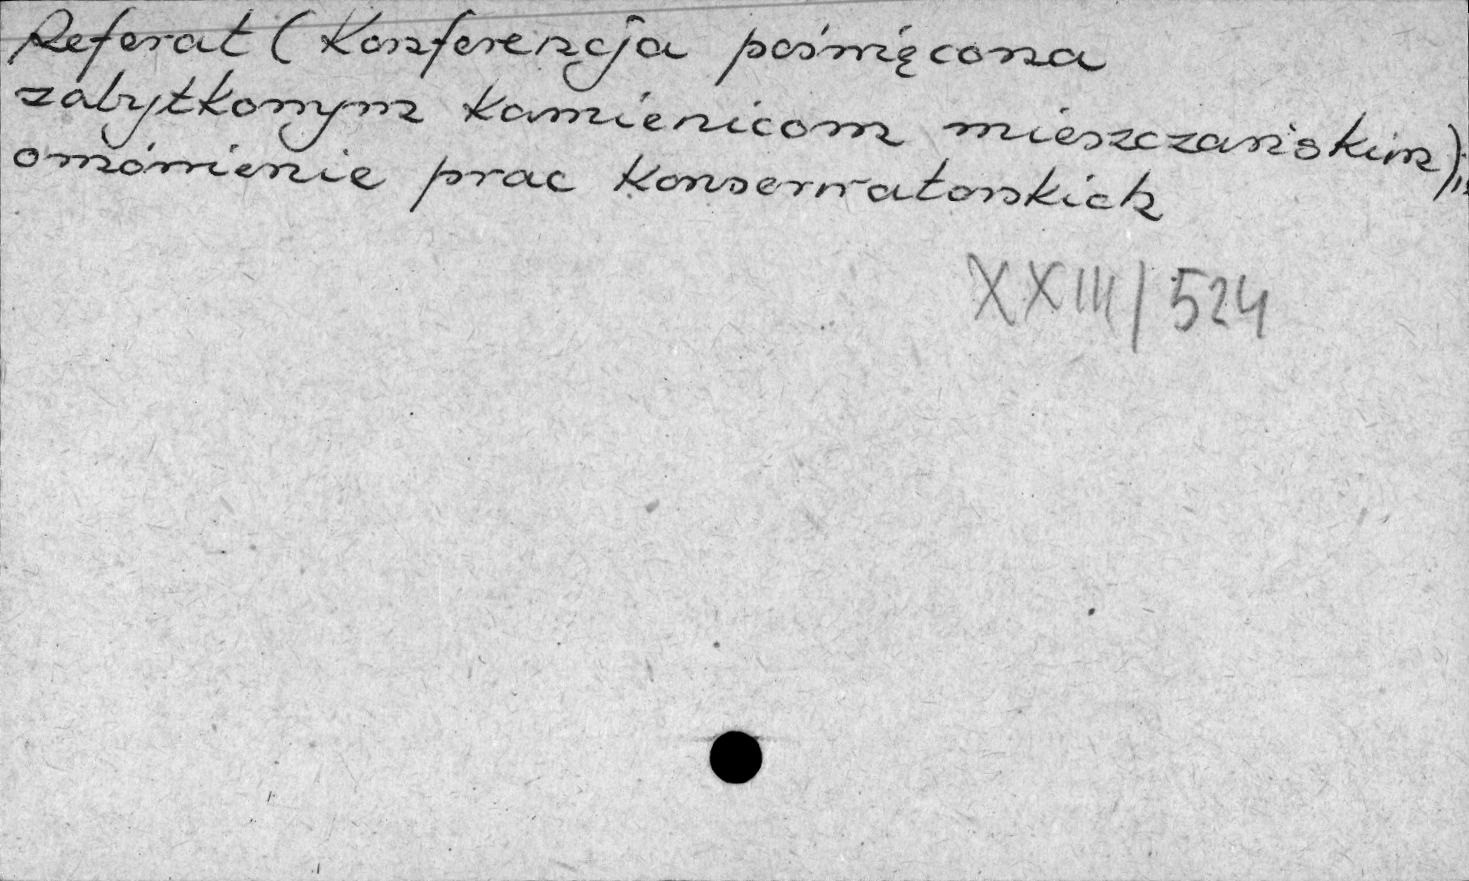 Referat (Konferencja poświęcona
zabytkowym kamienicom mieszczańskim),
omówienie prac konserwatorskich
XXIII/524